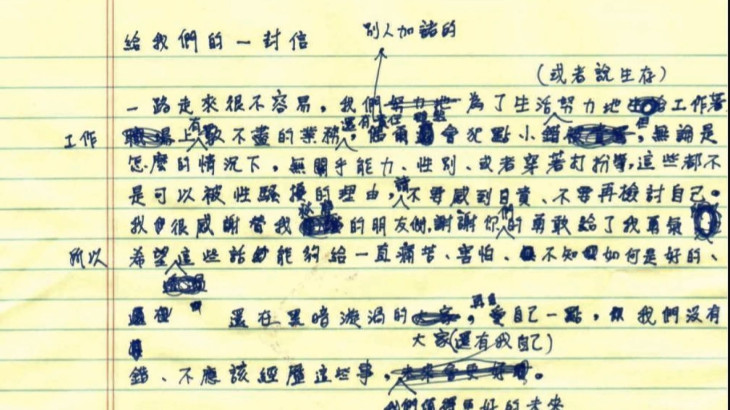 給我們的一封信
別人加諸的
(或者說生存)
一路走來很不容易,我們努力地為了生活努力地工作著
工作上有數不盡的業務,還有責任,偶爾會犯點小錯,但無論是
怎麼的情況下,無關乎能力、性別、或者穿著打扮等,這些都不
是可以被性騷擾的理由,請不要感到自責、不要再檢討自己。
我很感謝替我的朋友們,謝謝你們的勇敢給了我勇氣
所以希望這些話能夠給一直痛苦、害怕、不知如何是好的、
還在
還在黑暗漩渦的大家,愛自己一點,我們沒有
大家(還有我自己)
錯、不應該經歷這些事,未來會更好。
我們值得更好的未來